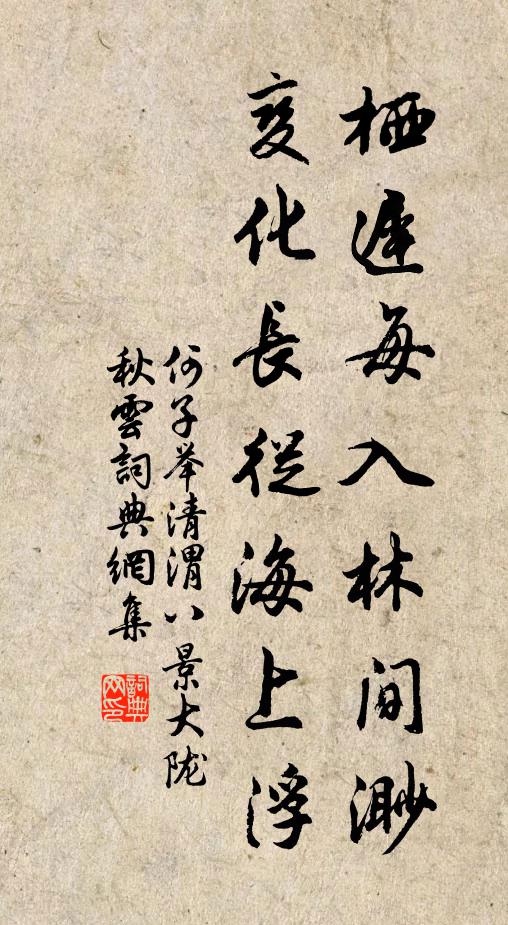 栖遲每入林間渺
變化長從海上浮
何子举清渭八景大陇
秋雲詞典網集
詞典网印